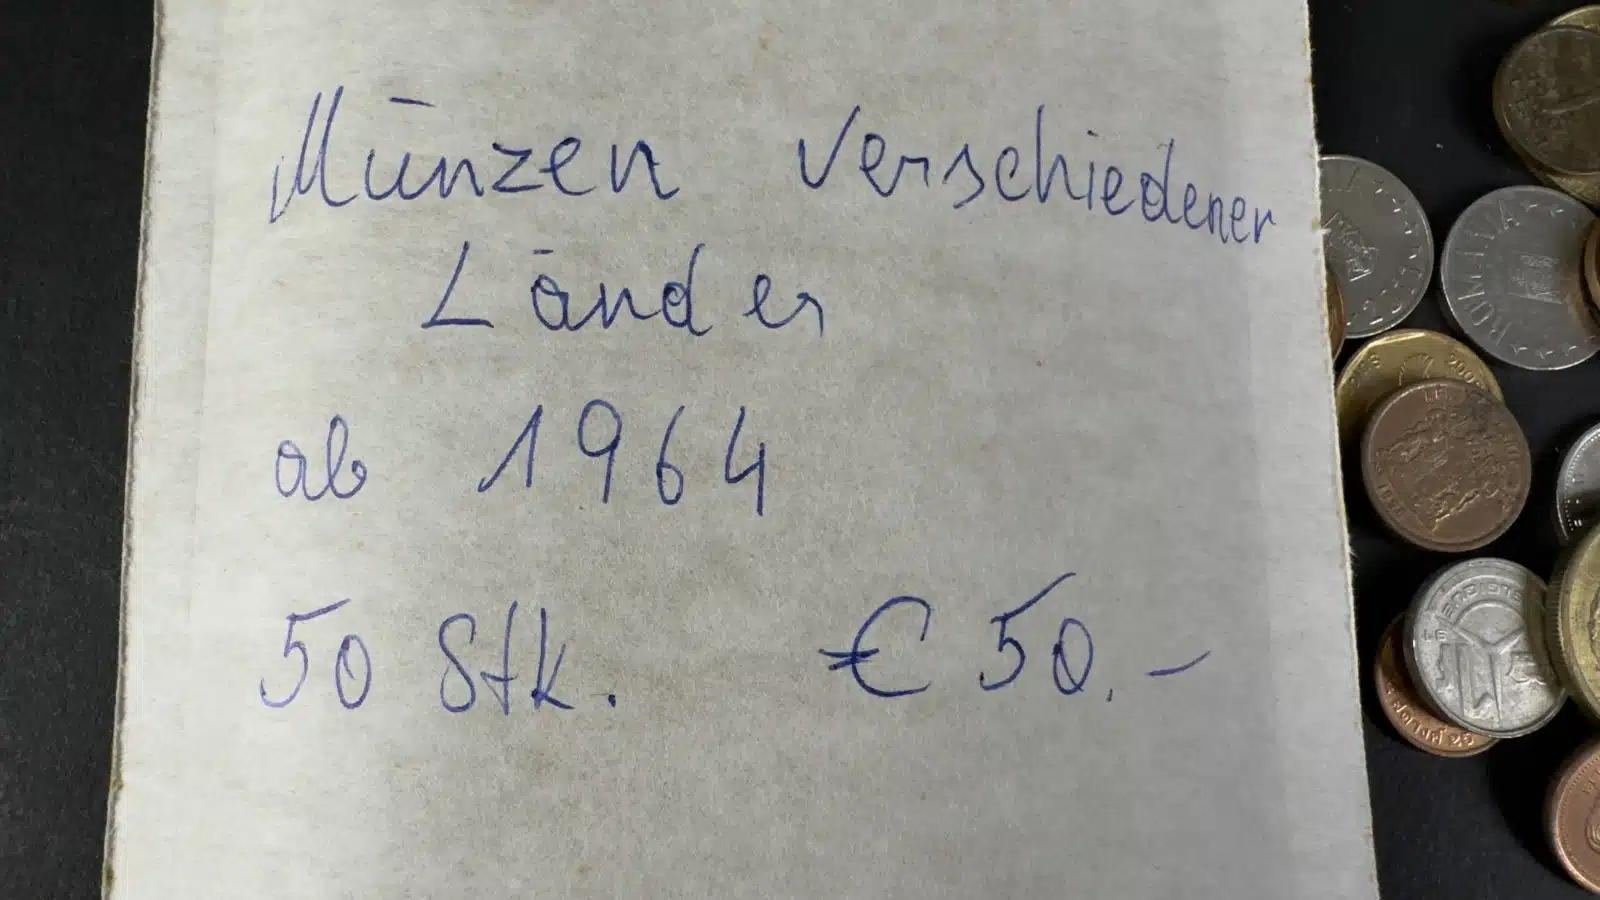 Münzen verschiedener
Länder
ab 1964
50 Stk. € 50.-
ROMANIA